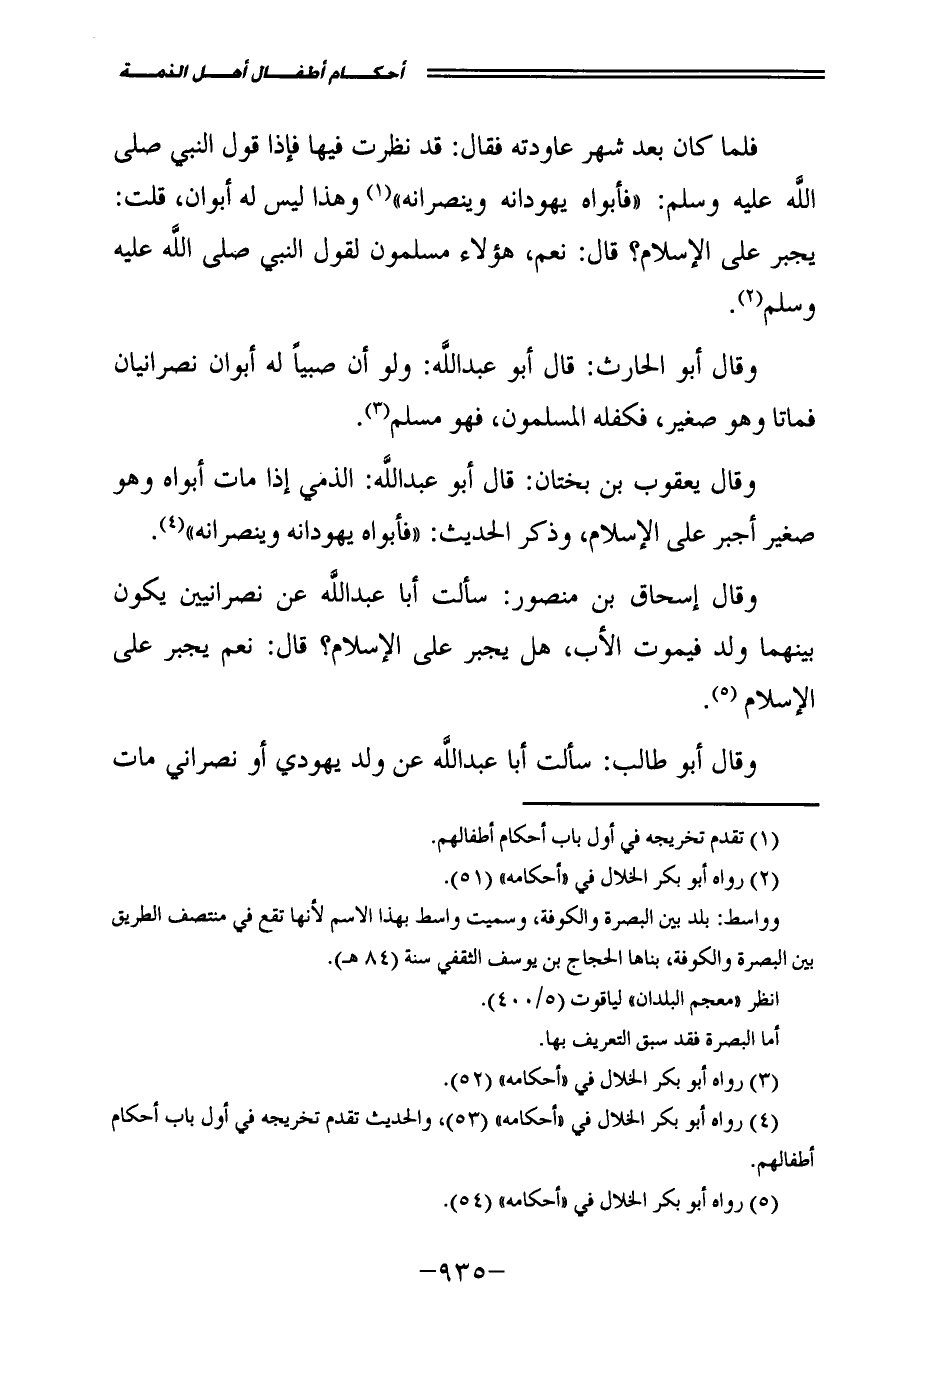 أحكام أطفال أهل الذمة
فلما كان بعد شهر عاودته فقال: قد نظرت فيها فإذا قول النبي صلى
الله عليه وسلم: «فأبواه يهودانه وينصرانه»(١) وهذا ليس له أبوان، قلت:
يجبر على الإسلام؟ قال: نعم، هؤلاء مسلمون لقول النبي صلى الله عليه
وسلم(٢).
وقال أبو الحارث: قال أبو عبدالله: ولو أن صبياً له أبوان نصرانيان
فماتا وهو صغير، فكفله المسلمون، فهو مسلم(٣).
وقال يعقوب بن بختان: قال أبو عبدالله: الذمي إذا مات أبواه وهو
صغير أجبر على الإسلام، وذكر الحديث: «فأبواه يهودانه وينصرانه»(٤).
وقال إسحاق بن منصور: سألت أبا عبدالله عن نصرانيين يكون
بينهما ولد فيموت الأب، هل يجبر على الإسلام؟ قال: نعم يجبر على
الإسلام (٥).
وقال أبو طالب: سألت أبا عبدالله عن ولد يهودي أو نصراني مات
(١) تقدم تخريجه في أول باب أحكام أطفالهم.
(٢) رواه أبو بكر الخلال في «أحكامه» (٥١).
وواسط: بلد بين البصرة والكوفة، وسميت واسط بهذا الاسم لأنها تقع في منتصف الطريق
بين البصرة والكوفة، بناها الحجاج بن يوسف الثقفي سنة (٨٤ هـ).
انظر «معجم البلدان» لياقوت (٤٠٠/٥).
أما البصرة فقد سبق التعريف بها.
(٣) رواه أبو بكر الخلال في «أحكامه» (٥٢).
(٤) رواه أبو بكر الخلال في «أحكامه» (٥٣)، والحديث تقدم تخريجه في أول باب أحكام
أطفالهم.
(٥) رواه أبو بكر الخلال في «أحكامه» (٥٤).
-٩٣٥-